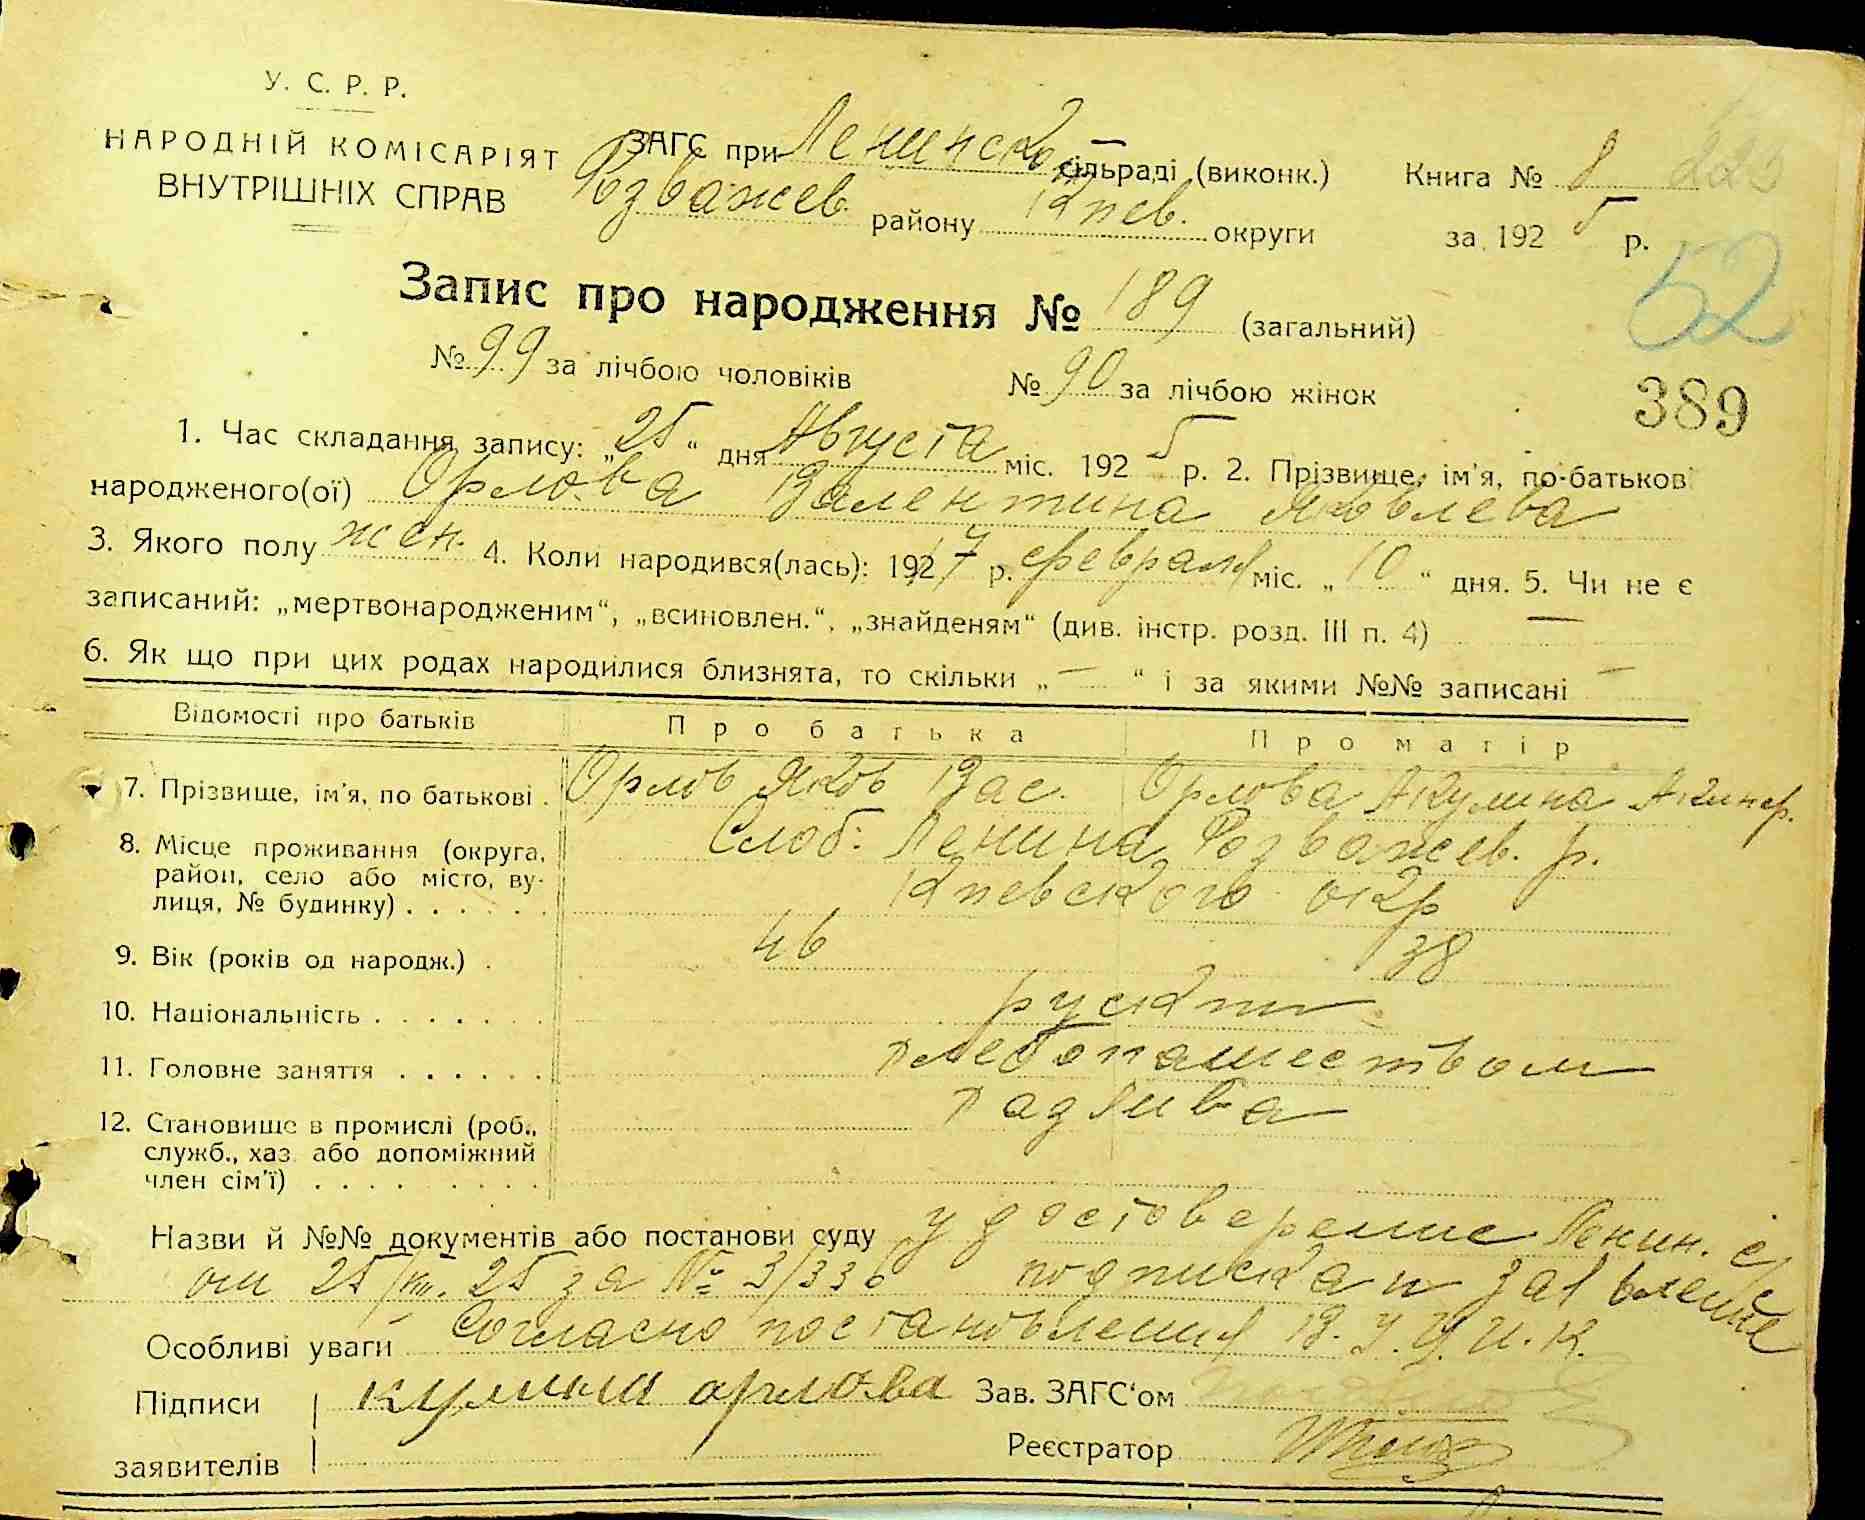 У. С. Р. Р.
НАРОДНІЙ КОМІСАРІЯТ
ВНУТРІШНІХ СПРАВ
ЗАГС при Ленинской сільраді (виконк.) Книга № 8 223
Розважев. району Киев. округи за 1925 р.
52
Запис про народження № 189 (загальний)
№ 99 за лічбою чоловіків № 90 за лічбою жінок
389
1. Час складання запису: „25“ дня Августа міс. 1925 р. 2. Прізвище, ім'я, по-батькові
народженого(ої) Орлова Валентина Яковлева
3. Якого полу жен. 4. Коли народився(лась): 1917 р. февраля міс. „10“ дня. 5. Чи не є
записаний: „мертвонародженим“, „всиновлен.“, „знайденям“ (див. інстр. розд. III п. 4) —
6. Як що при цих родах народилися близнята, то скільки „—“ і за якими №№ записані —
Відомості про батьків Про батька Про матір
7. Прізвище, ім'я, по батькові . Орлов Яков Вас. Орлова Акулина Акинф.
8. Місце проживання (округа, Слоб: Ленина Розважев. р.
район, село або місто, ву-
лиця, № будинку) . . . . . . Киевского окр
9. Вік (років од народж.) . 46 38
10. Національність . . . . . . . руские
11. Головне заняття . . . . . . хлебопашеством
12. Становище в промислі (роб., хадзяива
служб., хаз. або допоміжний
член сім'ї) . . . . . . . . .
Назви й №№ документів або постанови суду удостоверение Ленин. с/с
от 25/VIII. 25 за № 3/336 подписка и заявление
Особливі уваги Согласно постановления В. У. Ц. И. К.
Підписи орлова Зав. ЗАГС'ом
заявителів Реєстратор